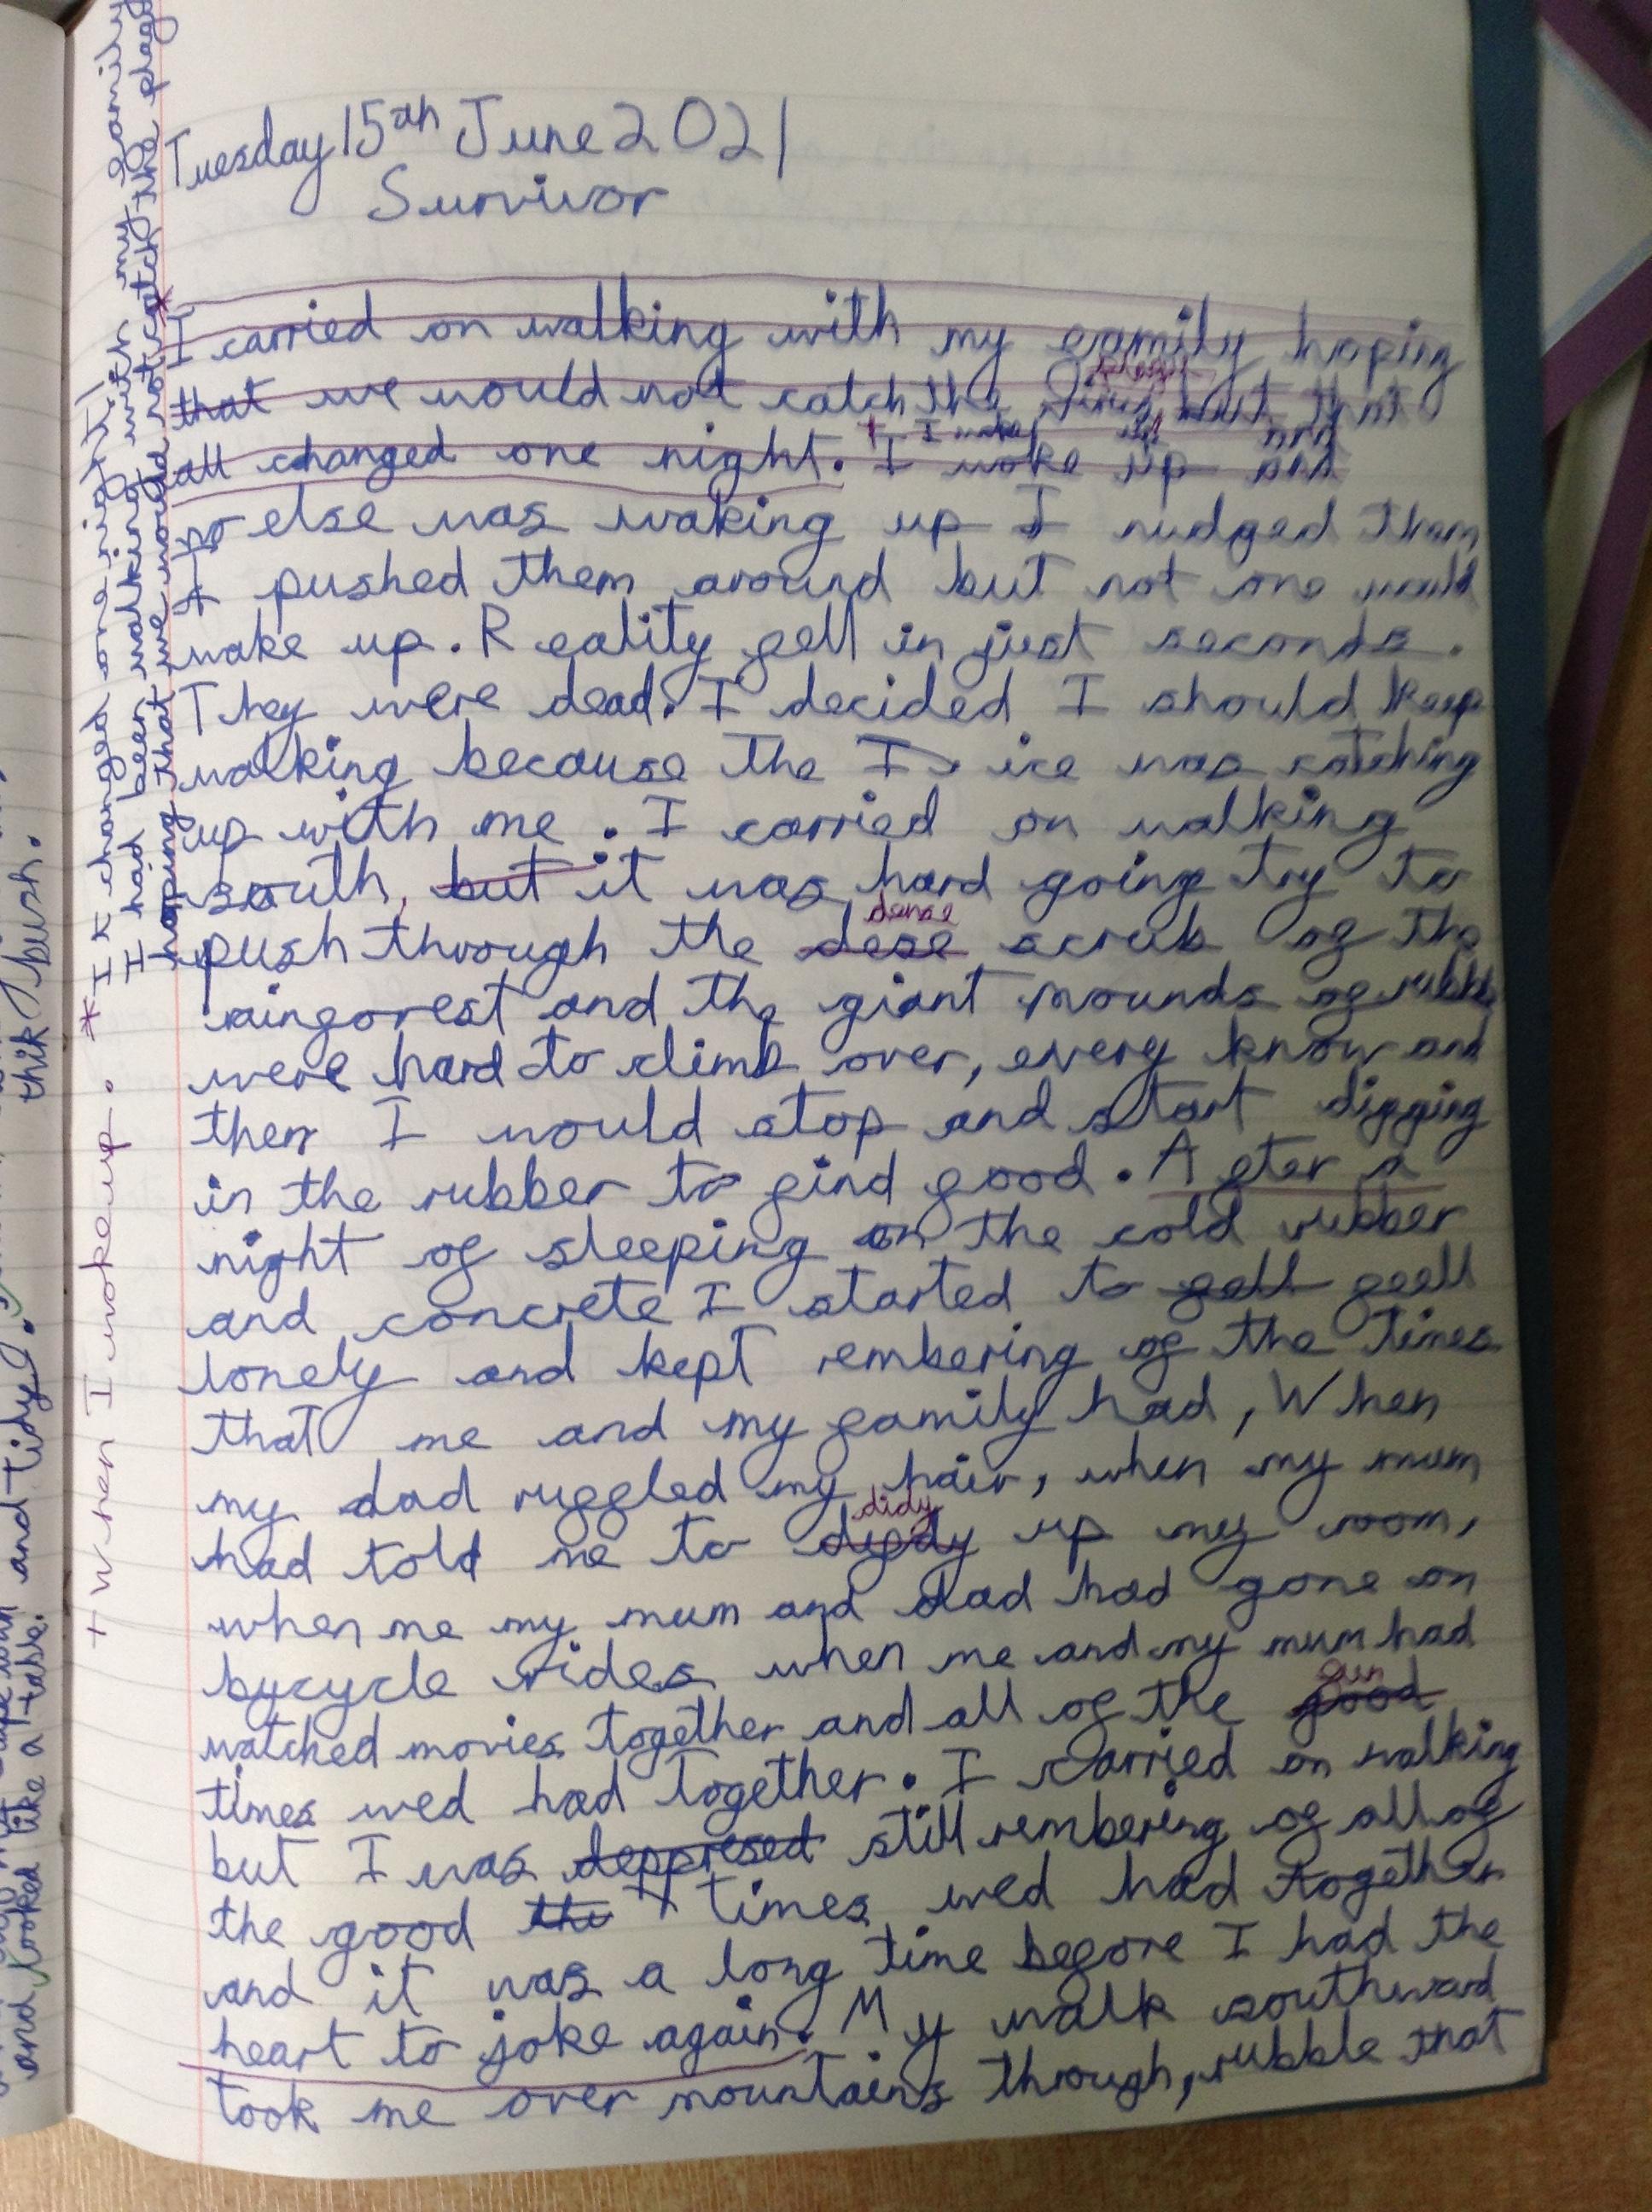 Tuesday 15th June 2021
Survivor
I carried on walking with my family hoping
that we would not catch the but that
all changed one night. I woke up and
no else was waking up I nudged them
I pushed them around but not one would
wake up. Reality fell in just seconds.
They were dead. I decided I should keep
walking because the I ice was catching
up with me. I carried on walking
south, but it was hard going try to
dense
push through the dese scrub of the
rainforest and the giant mounds of rubble
were hard to climb over, every know and
then I would stop and start digging
in the rubber to find food. After a
night of sleeping on the cold rubber
and concrete I started to fell feell
lonely and kept rembering of the times
that me and my family had, When
my dad ruffled my hair, when my mum
didy
had told me to dydy up my room,
when me my mum and dad had gone on
bycycle rides when me and my mum had
fun
watched movies together and all of the good
times wed had together. I carried on walking
but I was deppresed still rembering of all of
the good the times wed had together
and it was a long time before I had the
heart to joke again. My walk southward
took me over mountains through, rubble that
* It changed one night!
I had been walking with my family
hoping that we would not catch the phage
+ When I woke up.
thik bush.
and tidy.
and looked like a table.